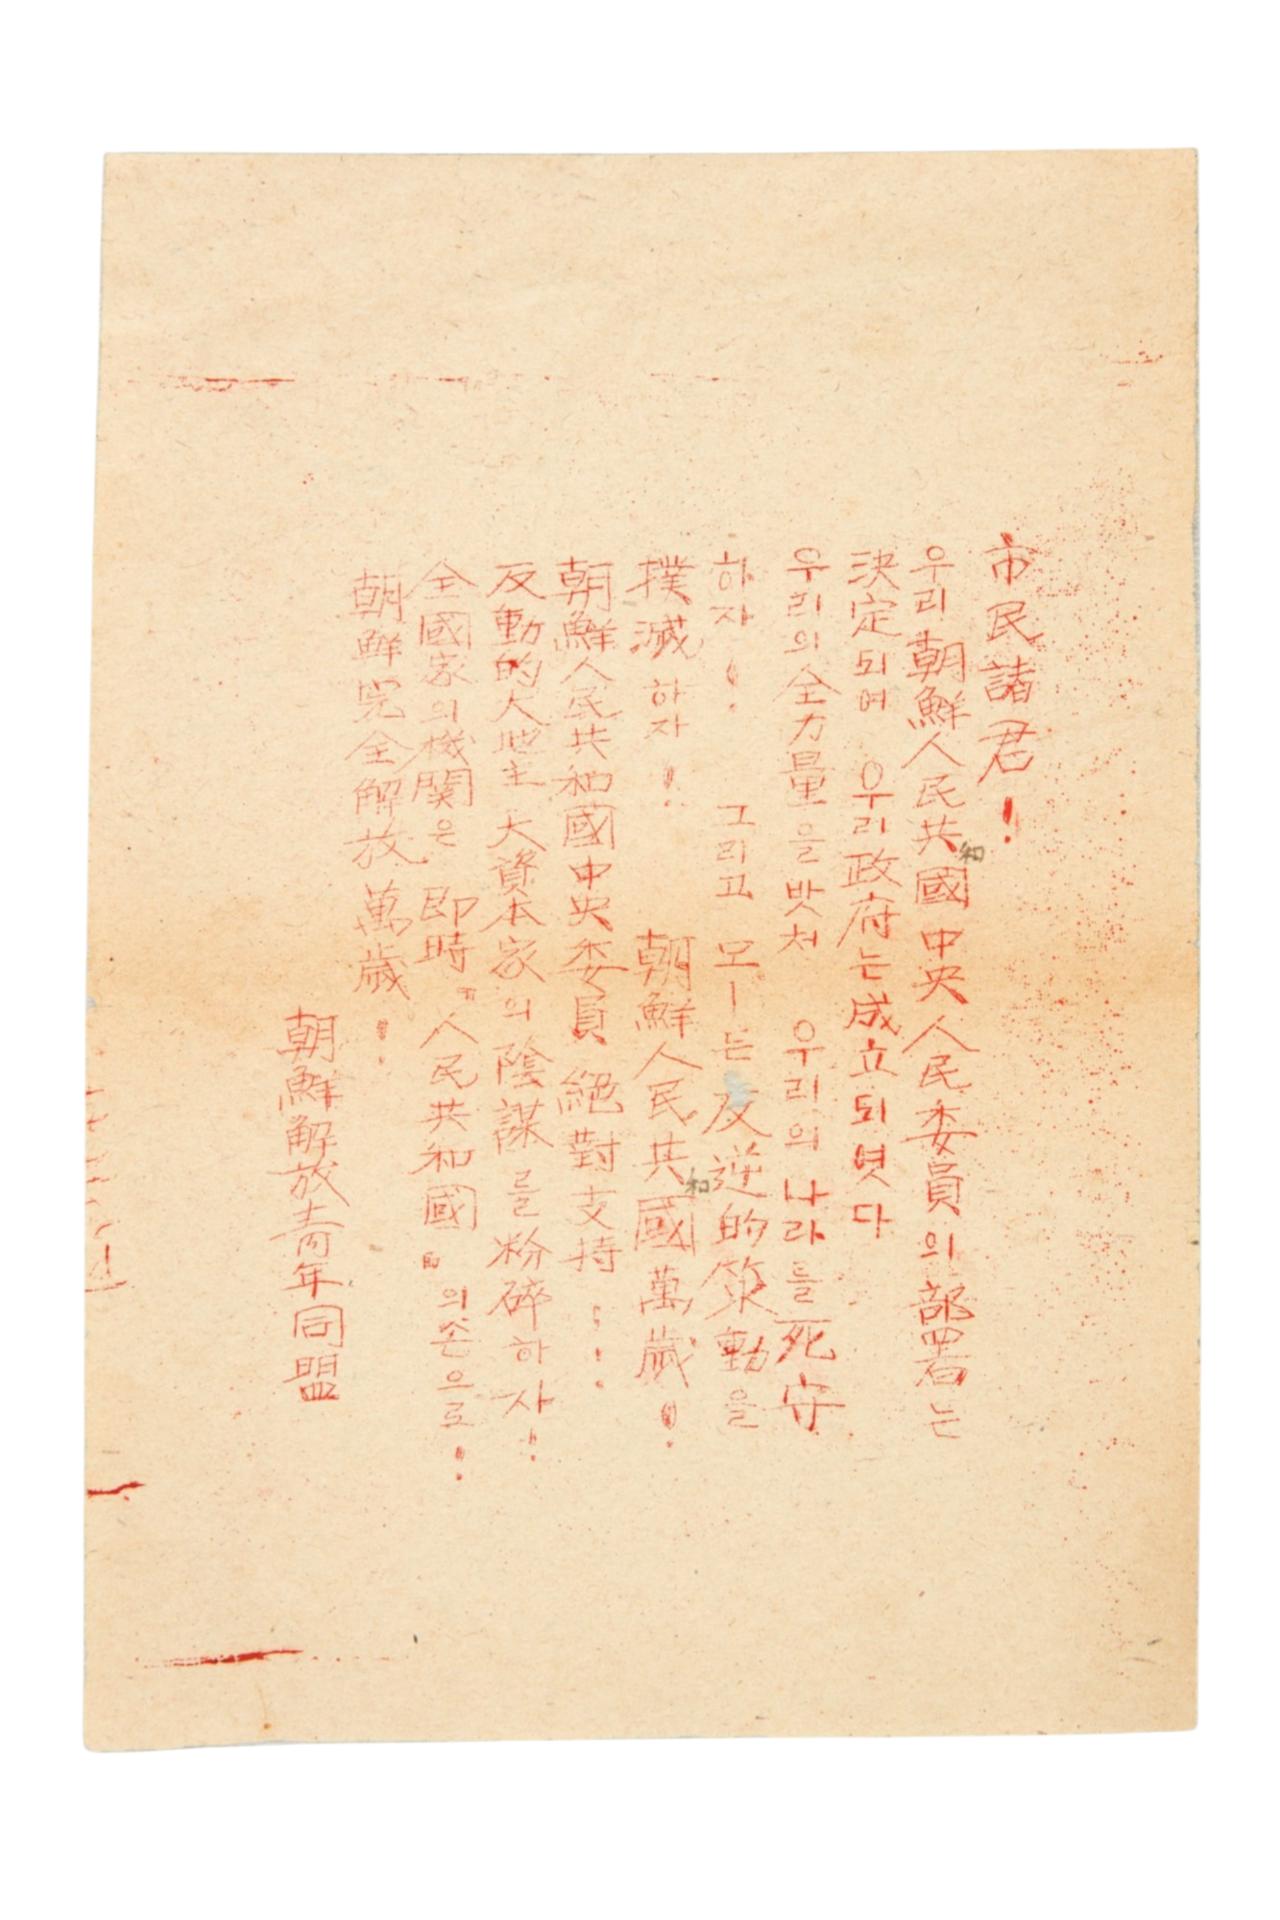 市民諸君!
우리 朝鮮人民共和國中央人民委員의 部署는
決定되여 우리 政府는 成立되엿다
우리의 全力量을 밧처 우리의 나라를 死守
하자! 그리고 모ー든 反逆的策動을
撲滅하자! 朝鮮人民共和國萬歲!
朝鮮人民共和國中央委員 絕對支持!!
反動的大地主 大資本家의 陰謀를 粉碎하자!
全國家의 機関은 即時 "人民共和國" 의손으로!
朝鮮完全解放萬歲!
朝鮮解放靑年同盟